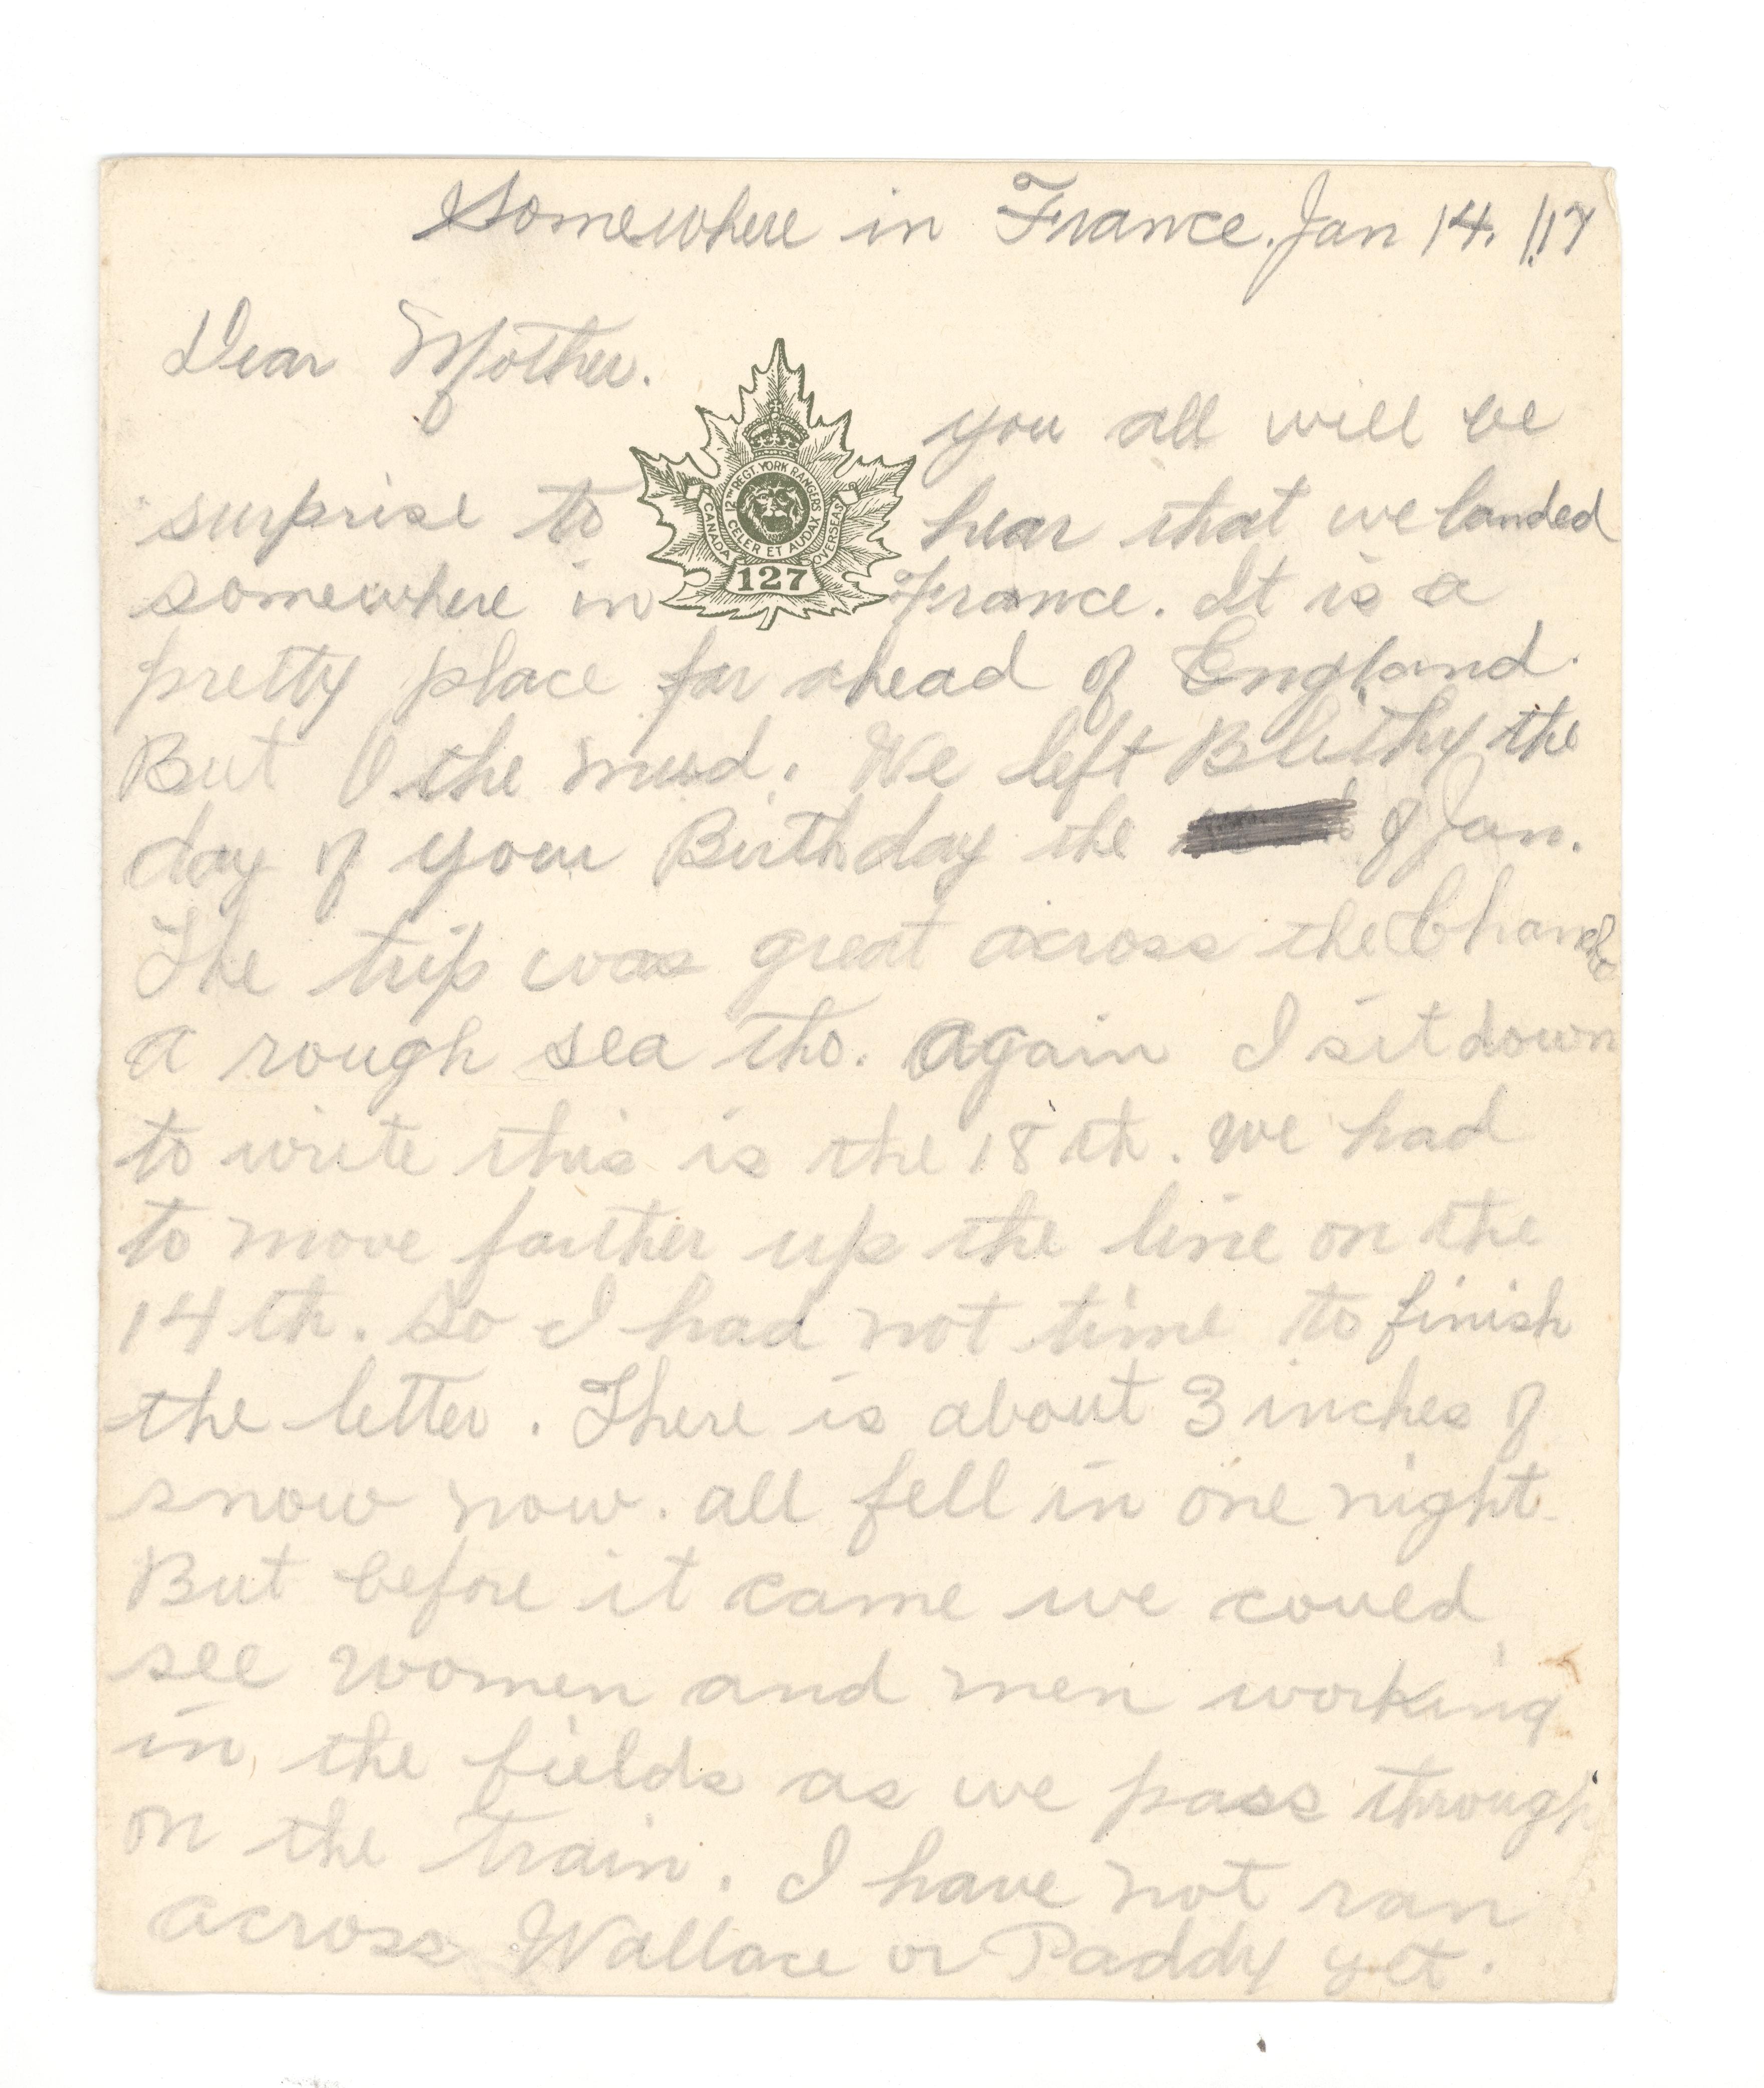 Somewhere in France. Jan 14. /17
Dear Mother.
you all will be
surprise to hear that we landed
somewhere in France. It is a
pretty place far ahead of England.
But O the mud. We left Blithy the
day of your Birthday the of Jan.
The trip was great across the Channel
a rough sea tho. Again I sit down
to write this is the 18th. We had
to move farther up the line on the
14th. So I had not time to finish
the letter. There is about 3 inches of
snow now. all fell in one night.
But before it came we could
see women and men working
in the fields as we pass through
on the train. I have not ran
across Wallace or Paddy yet.
12TH REGT. YORK RANGERS
CELER ET AUDAX
CANADA OVERSEAS
127